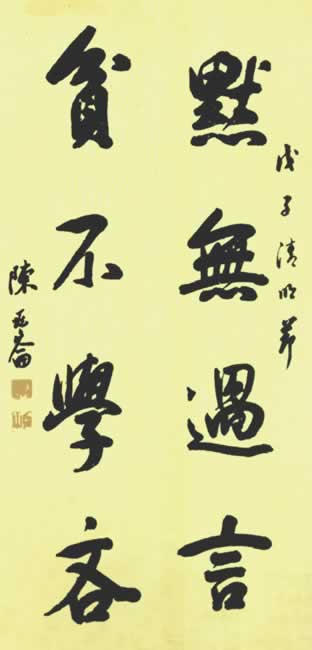 戊子清明節
默無過言
貧不學吝
陳